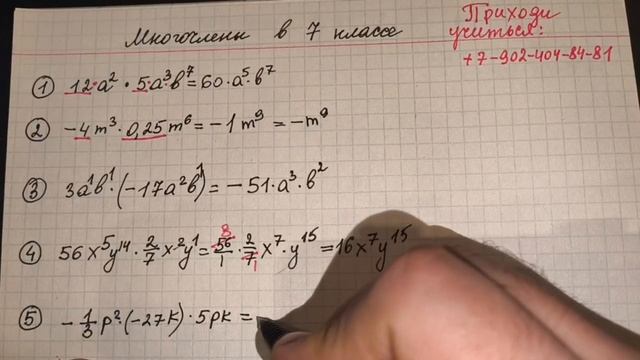 Многочлены в 7 классе
Приходи
учиться:
+7-902-404-84-81
① 12·a²·5·a³b⁷=60·a⁵·b⁷
② -4m³·0,25m⁶=-1m⁹=-m⁹
③ 3a¹b¹·(-17a²b¹)=-51·a³·b²
④ 56x⁵y¹⁴·2/7x²y¹=56/1·2/7x⁷·y¹⁵=16x⁷y¹⁵
8
1
⑤ -1/3p²·(-27k)·5pk=